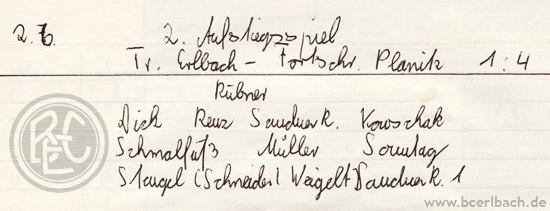 2. 6. 2. Aufstiegsspiel
Tr. Erlbach - Fortschr. Planitz 1:4
Rübner
Dick Renz Sandner K. Kowschak
Schmalfuß Müller Sonntag
Stengel (Schneider) Weigelt Sandner R. 1
BCE
www.bcerlbach.de